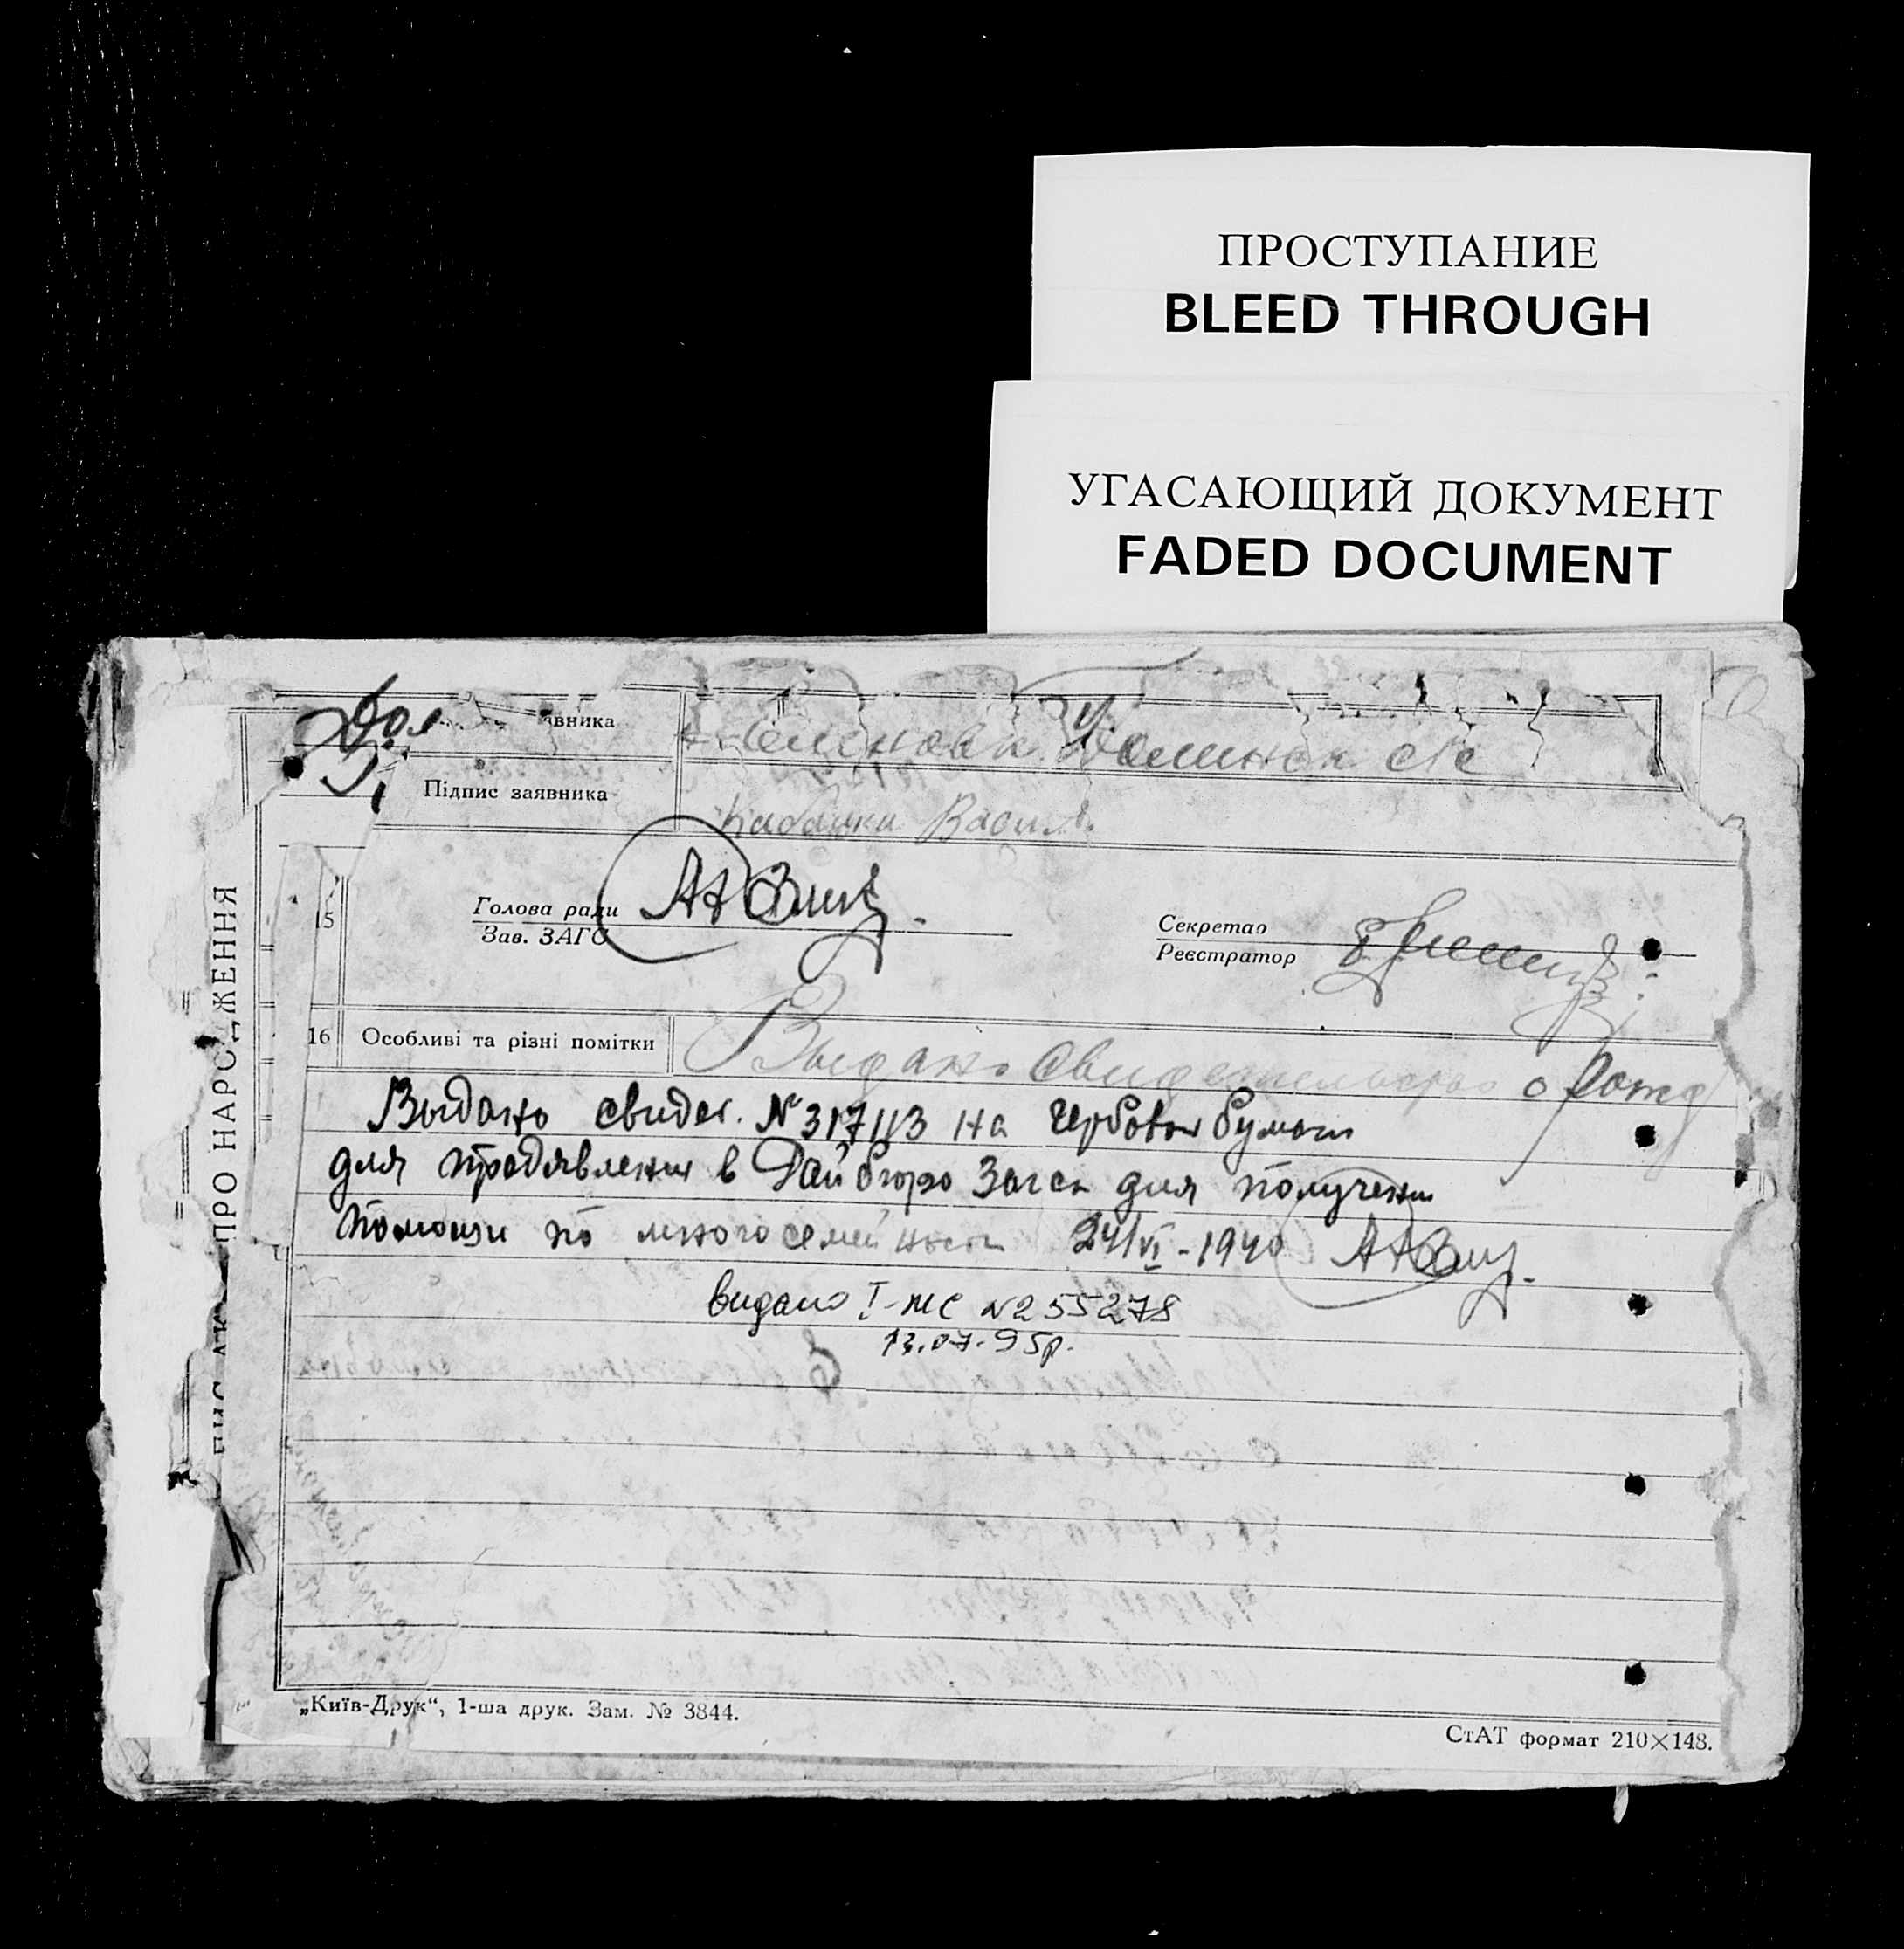 ПРОСТУПАНИЕ
BLEED THROUGH
УГАСАЮЩИЙ ДОКУМЕНТ
FADED DOCUMENT
явника
Підпис заявника
Васил.
15
Голова ради
Зав. ЗАГС
Секретар
Реєстратор
16 Особливі та різні помітки Выдано свидетельство о рожд
Выдано свидет. № 317113 на гербовой бумаги
для предявления в Райбюро Загса для получения
помощи по многосемейности 24/VI-1940
видано І-ЖС № 255278
13.07.95р.
ПРО НАРОДЖЕННЯ
„Київ-Друк“, 1-ша друк. Зам. № 3844.
СтАТ формат 210×148.